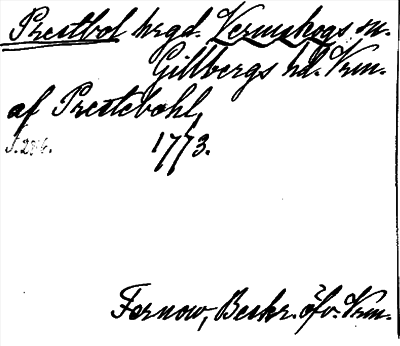 Prestbol hrgd. Vermskogs sn.
Gillbergs hd. Vrm.
af Prestebohl,
s. 286. 1773.
Fernow, Beskr. öfv. Vrm.